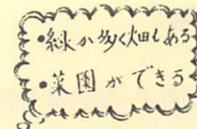 ・緑が多く畑もある
・菜園ができる